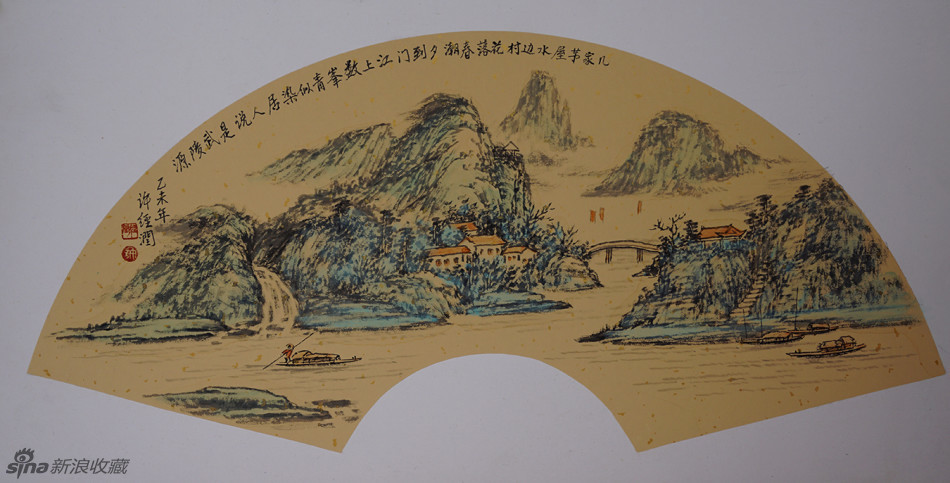 几家茅屋水边村花落春潮夕到门江上数峯青似染居人说是武陵源
乙未年
许經潤
sina新浪收藏